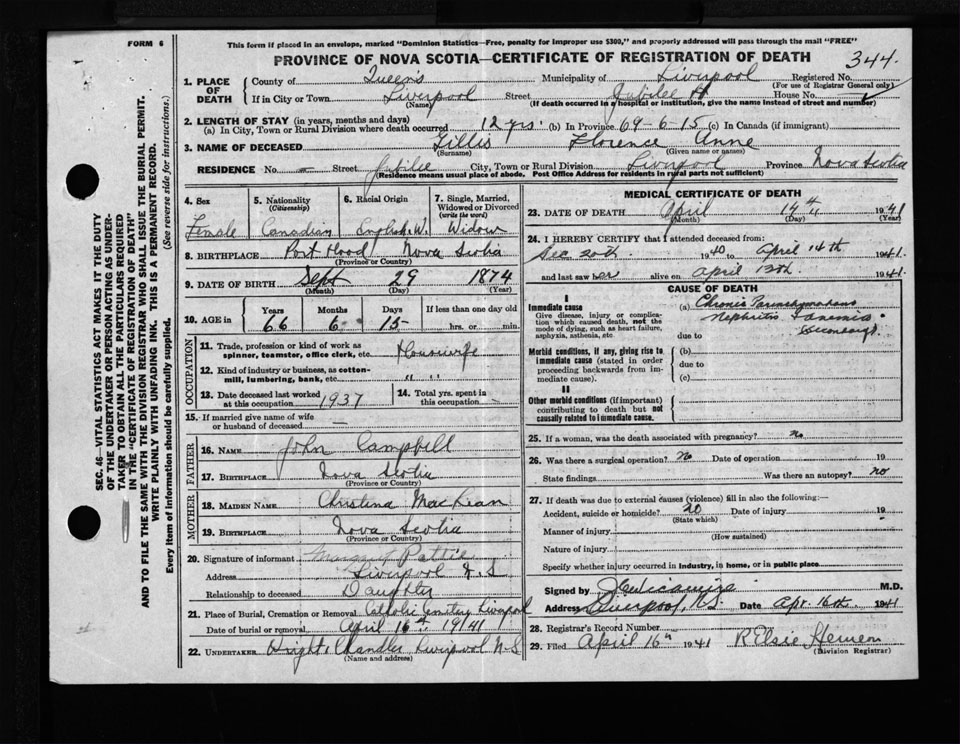 FORM 6
This form if placed in an envelope, marked "Dominion Statistics—Free, penalty for improper use $300," and properly addressed will pass through the mail "FREE"
PROVINCE OF NOVA SCOTIA—CERTIFICATE OF REGISTRATION OF DEATH
344.
1. PLACE OF DEATH
County of Queens Municipality of Liverpool Registered No.
(For use of Registrar General only)
If in City or Town Liverpool Street Jubilee House No.
(Name) (If death occurred in a hospital or institution, give the name instead of street and number)
2. LENGTH OF STAY (in years, months and days)
(a) In City, Town or Rural Division where death occurred 12 yrs. (b) In Province 69-6-15 (c) In Canada (if immigrant)
3. NAME OF DECEASED Gillis Florence Anne
(Surname) (Given name or names)
RESIDENCE No. — Street Jubilee City, Town or Rural Division Liverpool Province Nova Scotia
(Residence means usual place of abode. Post Office Address for residents in rural parts not sufficient)
4. Sex
Female
5. Nationality
(Citizenship)
Canadian
6. Racial Origin
English. W.
7. Single, Married, Widowed or Divorced
(write the word)
Widow
8. BIRTHPLACE Port Hood Nova Scotia
(Province or Country)
9. DATE OF BIRTH Sept 29 1874
(Month) (Day) (Year)
10. AGE in
Years Months Days If less than one day old
66 6 15 hrs. or min.
OCCUPATION
11. Trade, profession or kind of work as spinner, teamster, office clerk, etc. Housewife
12. Kind of industry or business, as cotton-mill, lumbering, bank, etc. " "
13. Date deceased last worked at this occupation 1937
14. Total yrs. spent in this occupation —
15. If married give name of wife or husband of deceased —
FATHER
16. NAME John Campbell
17. BIRTHPLACE Nova Scotia
(Province or Country)
MOTHER
18. MAIDEN NAME Christina MacLean
19. BIRTHPLACE Nova Scotia
(Province or Country)
20. Signature of informant Margaret Pattie
Address Liverpool N.S
Relationship to deceased Daughter
21. Place of Burial, Cremation or Removal Catholic Cemetery Liverpool
Date of burial or removal April 16th 1941
22. UNDERTAKER Wright & Chandler Liverpool N-S
(Name and address)
MEDICAL CERTIFICATE OF DEATH
23. DATE OF DEATH April 14th 1941
(Month) (Day) (Year)
24. I HEREBY CERTIFY that I attended deceased from:
Dec 20th 1940 to April 14th 1941
and last saw her alive on April 13th 1941.
CAUSE OF DEATH
I
Immediate cause
Give disease, injury or complication which caused death, not the mode of dying, such as heart failure, asphyxia, asthenia, etc.
(a) Chronic Parenchymatous
Nephritis & anemia
due to Secondary
Morbid conditions, if any, giving rise to immediate cause (stated in order proceeding backwards from immediate cause).
(b)
due to
(c)
II
Other morbid conditions (if important) contributing to death but not causally related to immediate cause.
25. If a woman, was the death associated with pregnancy? no
26. Was there a surgical operation? No Date of operation 19
State findings Was there an autopsy? no
27. If death was due to external causes (violence) fill in also the following:—
Accident, suicide or homicide? no Date of injury 19
(State which)
Manner of injury
(How sustained)
Nature of injury
Specify whether injury occurred in industry, in home, or in public place
Signed by M.D.
Address Liverpool, N.S. Date Apr. 16th 1941
28. Registrar's Record Number
29. Filed April 16th 1941 R Elsie
(Division Registrar)
SEC. 46—VITAL STATISTICS ACT MAKES IT THE DUTY
OF THE UNDERTAKER OR PERSON ACTING AS UNDER-
TAKER TO OBTAIN ALL THE PARTICULARS REQUIRED
IN THE "CERTIFICATE OF REGISTRATION OF DEATH"
AND TO FILE THE SAME WITH THE DIVISION REGISTRAR WHO SHALL ISSUE THE BURIAL PERMIT.
WRITE PLAINLY WITH UNFADING INK. THIS IS A PERMANENT RECORD.
Every item of information should be carefully supplied. (See reverse side for instructions.)